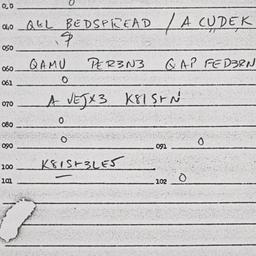 0
040 QUL BEDSPREAD / A CUDEK
050
060 QAMU PER3N3 QAP FED3RN
061 0
070 A VEJX3 K8ISHN
080 0
090 0 091 0
100 K8ISH3LE5
101 102 0